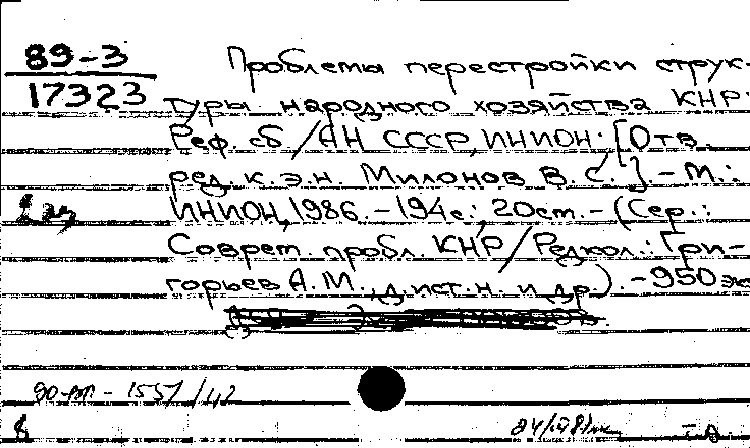 89-3
17323
Проблемы перестройки струк-
туры народного хозяйства КНР:
Реф. сб /АН СССР, ИНИОН; [Отв.
ред. к.э.н. Милонов В.С.]. - М.:
ИНИОН, 1986. - 194 с.; 20 см. - (Сер.:
2 эк
Соврем. пробл. КНР / Редкол.: Гри-
горьев А.М., д.ист.н. и др.). - 950 эк
90-
1551/